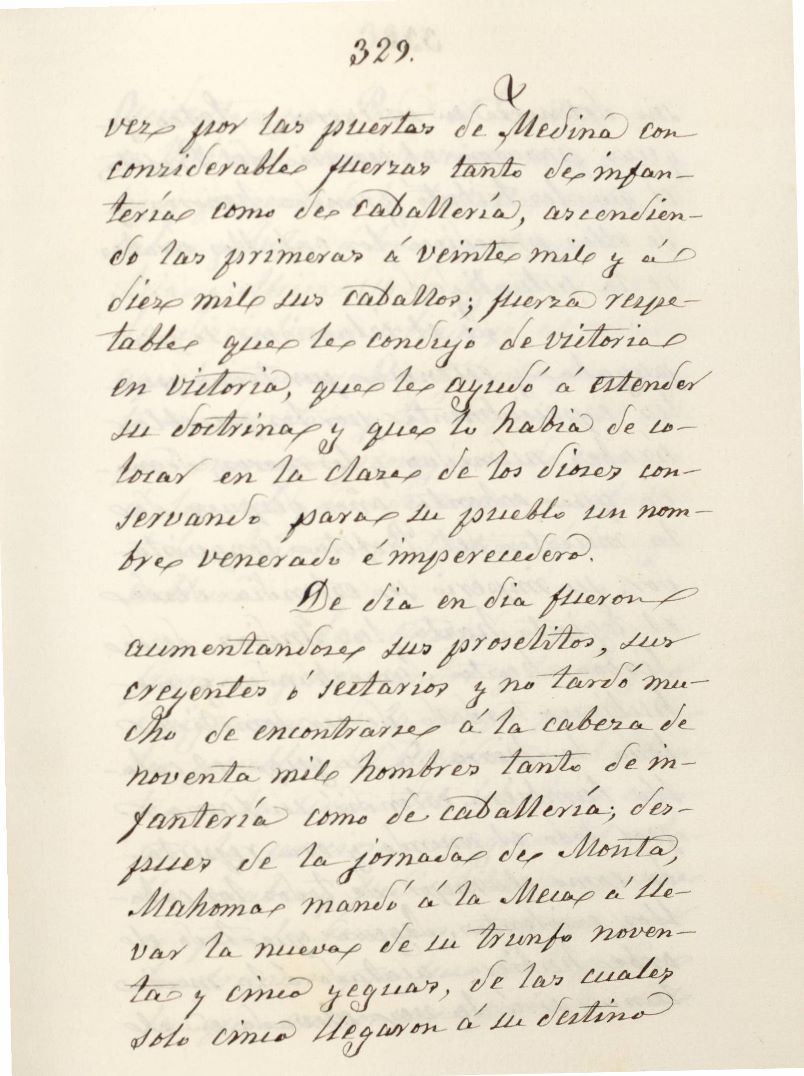 329.
vez por las puertas de Medina con
considerable fuerzas tanto de infan-
tería como de caballería, ascendien-
do las primeras á veinte mil y á
diez mil sus caballos; fuerza respe-
table que le condujo de victoria
en victoria, que le ayudó á estender
su doctrina y que lo habia de co-
locar en la clase de los dioses con-
servando para su pueblo un nom-
bre venerado é imperecedero.
De dia en dia fueron
aumentandose sus proselitos, sus
creyentes ó sectarios y no tardó mu-
cho de encontrarse á la cabeza de
noventa mil hombres tanto de in-
fantería como de caballería; des-
pues de la jornada de Monta,
Mahoma mandó á la Meca á lle-
var la nueva de su triunfo noven-
ta y cinco yeguas, de las cuales
solo cinco llegaron á su destino